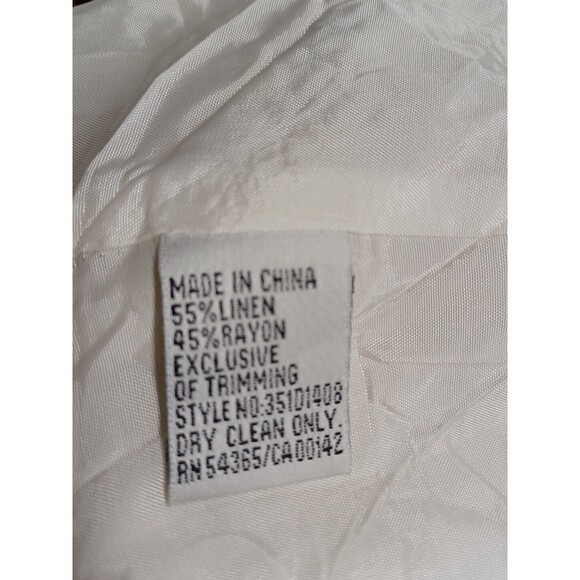 MADE IN CHINA
55%LINEN
45%RAYON
EXCLUSIVE
OF TRIMMING
STYLE NO:351D1408
DRY CLEAN ONLY.
RN 54365/CA 00142